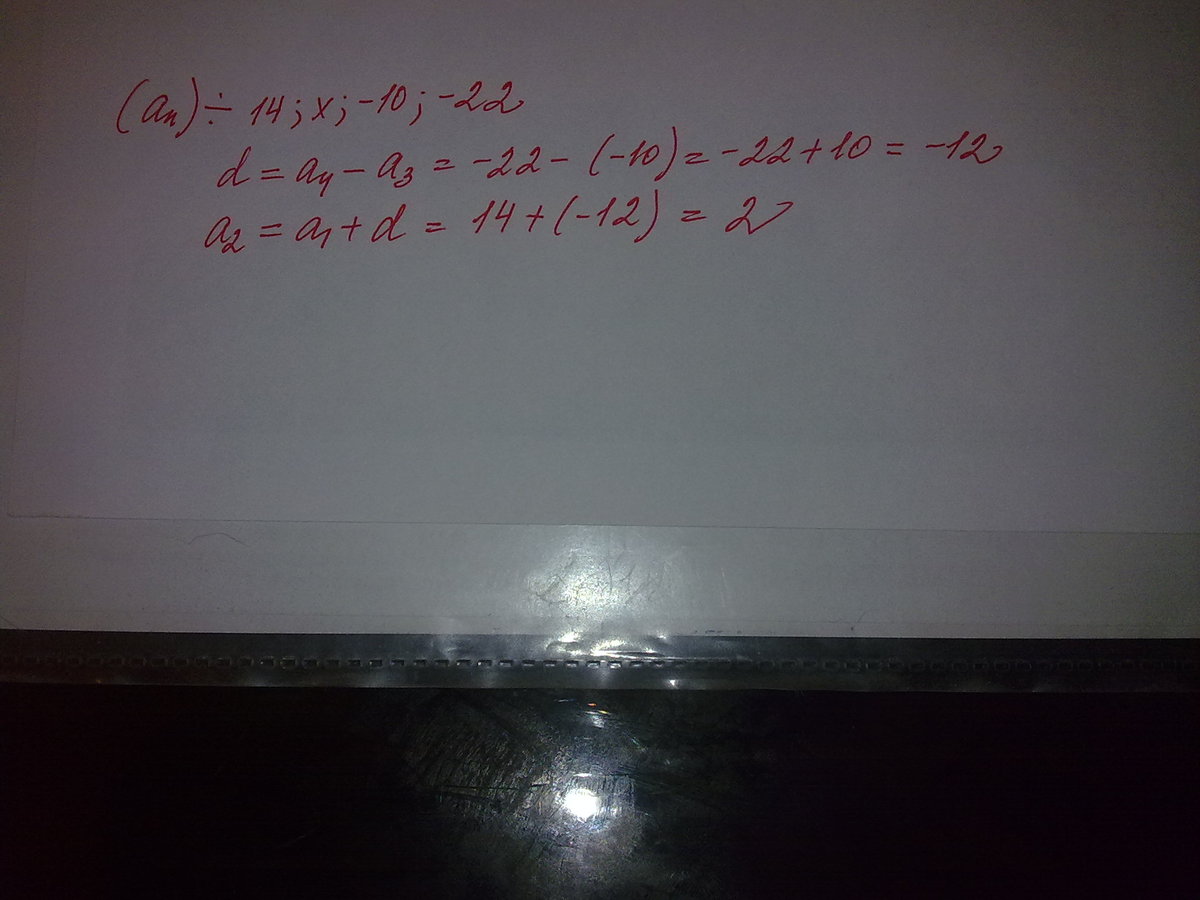 (aₙ) ÷ 14; x; -10; -22
d = a₄ - a₃ = -22 - (-10) = -22 + 10 = -12
a₂ = a₁ + d = 14 + (-12) = 2